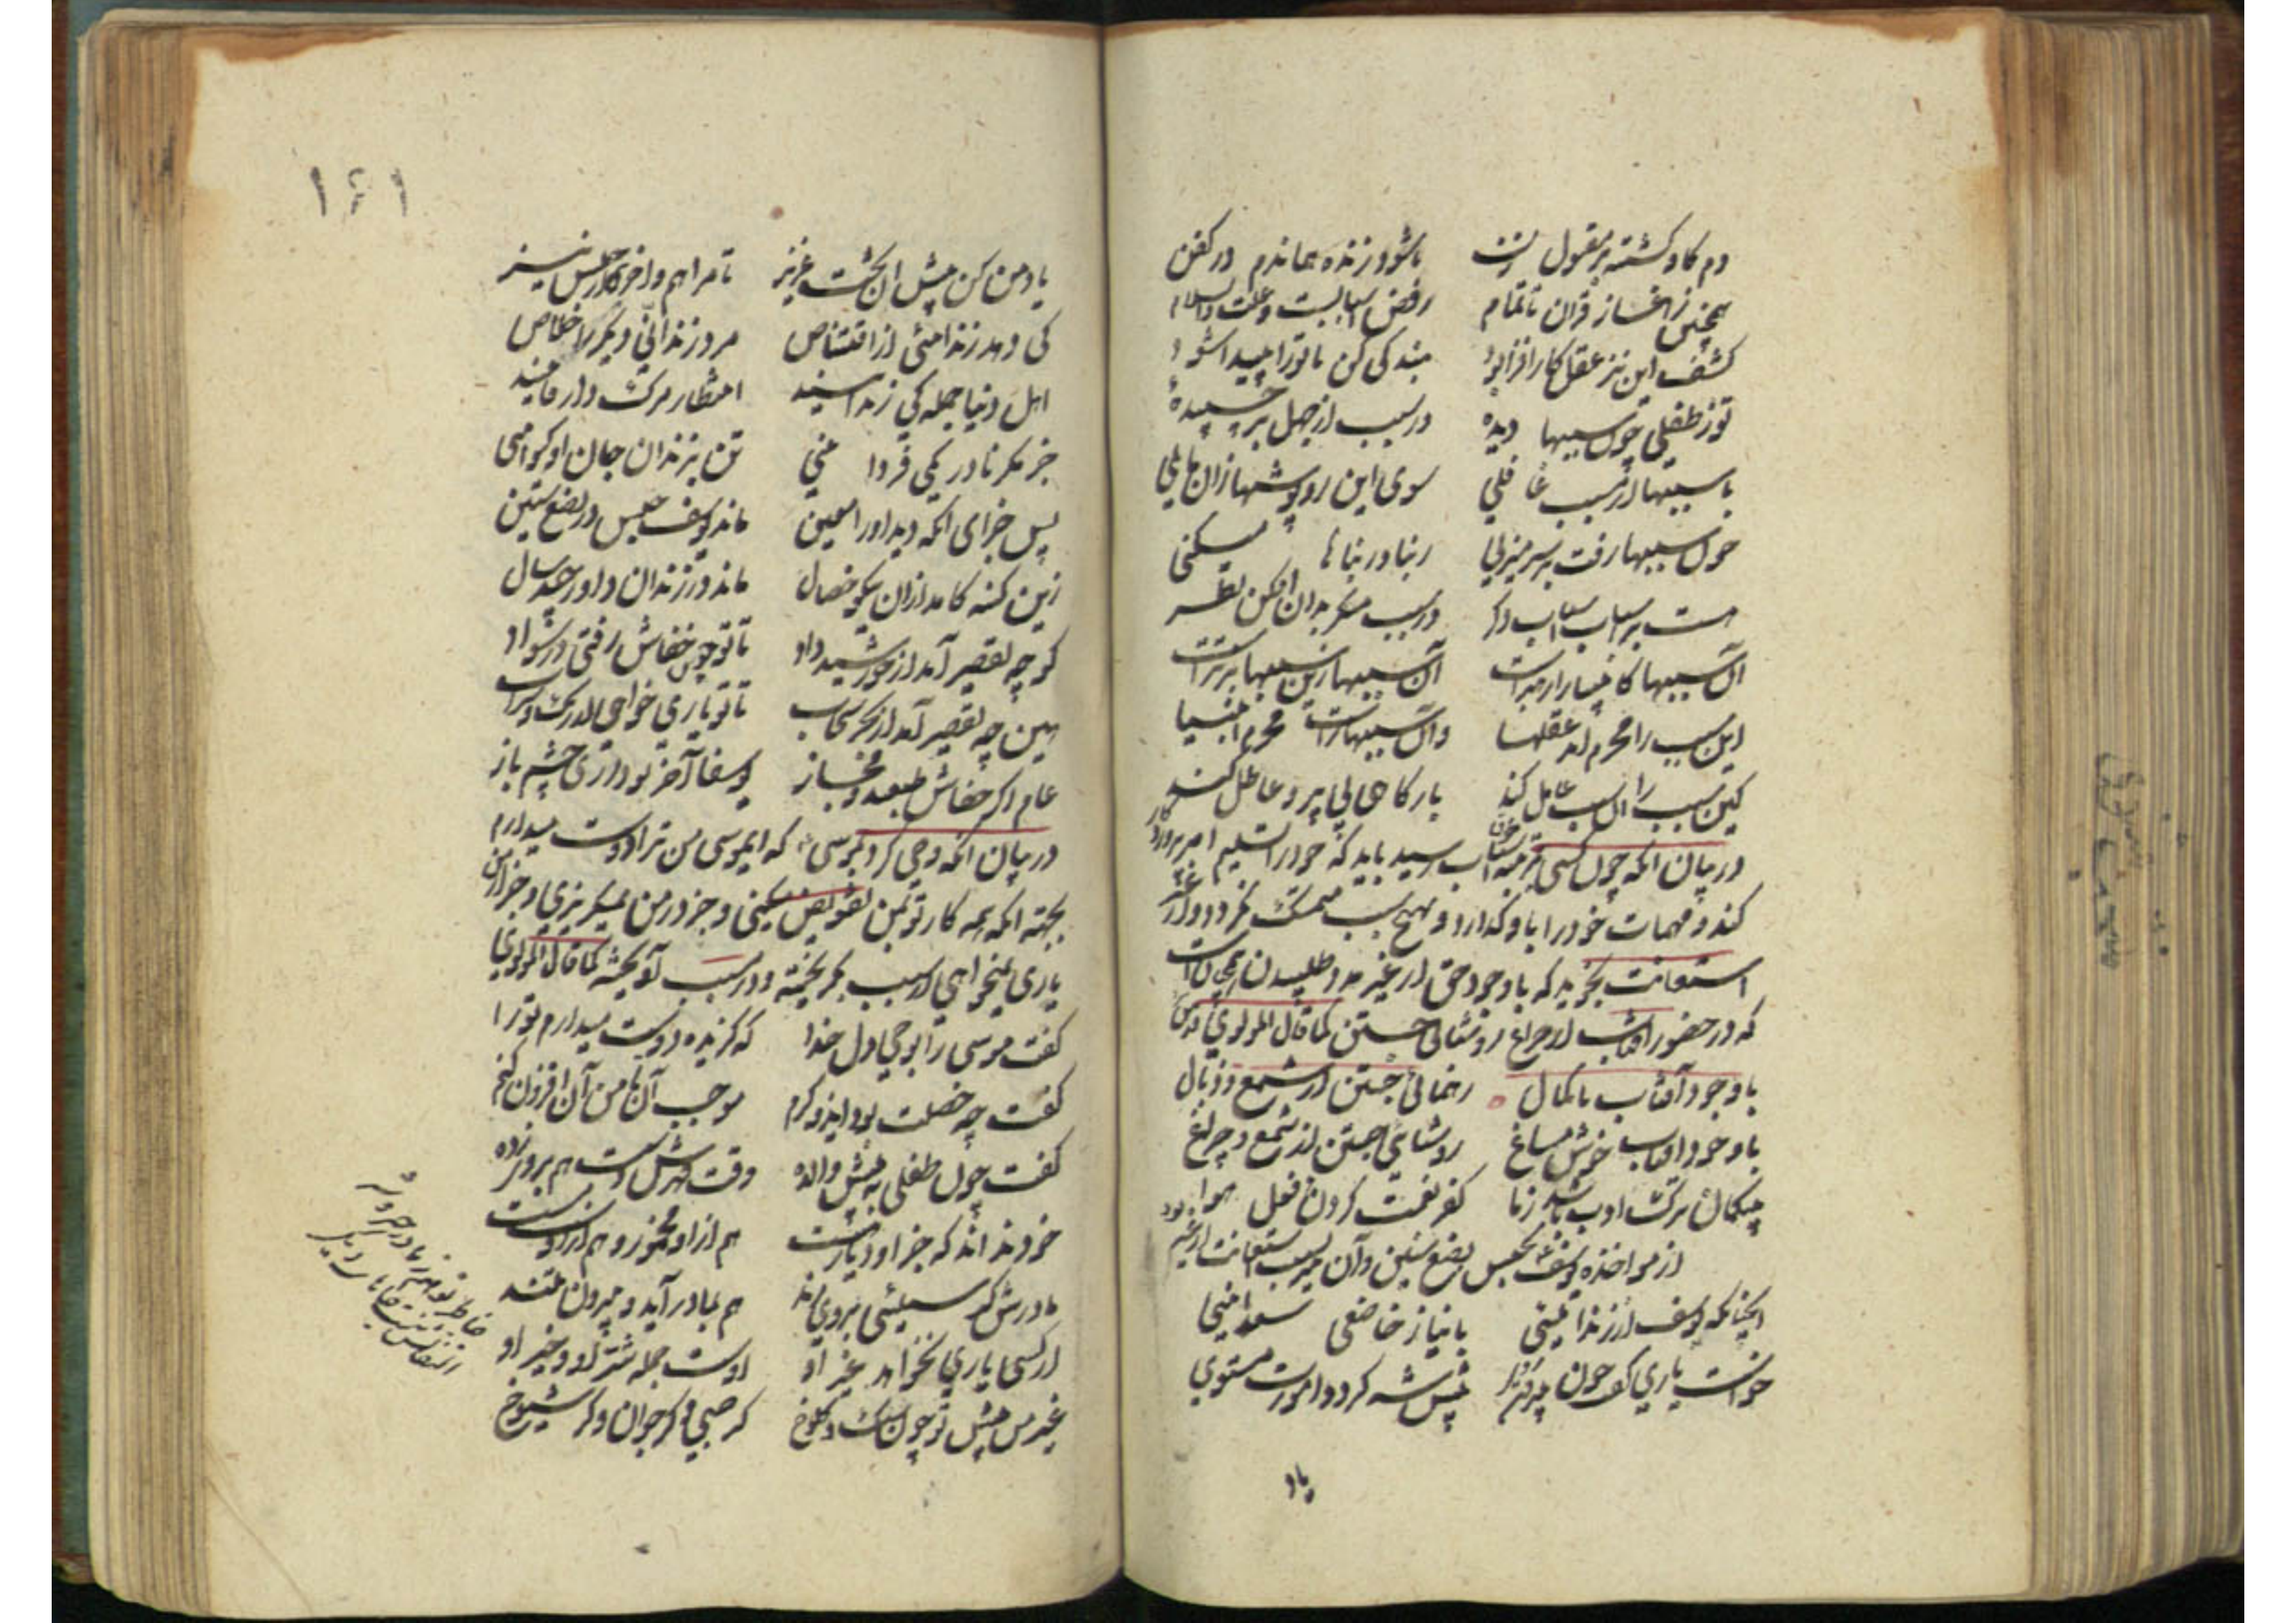 دم کاو کشته بر مقتول زن تا شود زنده هماندم در کفن
همچنین ز آغاز قران تا تمام رفض اسبابست و علت والسلام
کشف این نز عقل کار افزا بود بندکی کن تا تورا پیدا شود
تو ز طفلی چون سببها دیده در سبب از جهل بر چسپیده
با سببها از مسبب غافلی سوی این روپوشها زان مایلی
چون سببها رفت بر سر میزنی ربنا و ربناها میکنی
هست بر اسباب اسباب دکر در سبب منکر بدان افکن نظر
آن سببها کانبیا را رهبرست آن سببها زین سببها برترست
این سبب را محرم آمد عقلها وان سببهاراست محرم انبیا
کین سبب را آن سبب عامل کند باز کاهی بی پر و عاطل کند
در بیان انکه چون کسی بمرتبه رسید باید که خود را تسلیم امر پروردکار
کند و مهمات خود را باو کذارد و بهیچ سبب متمسک نکردد و از غیر
استعانت نجوید که با وجود حق از غیر مدد طلبیدن بمثابه است
که در حضور افتاب از چراغ روشنائی جستن کما قال المولوی قدس
با وجود آفتاب با کمال رهنمائی جستن از شمع و ذبال
با وجود افتاب خوش مساغ روشنایی جستن از شمع و چراغ
بیکمان ترک ادب باشد ز ما کفر نعمت کردن و فعل هوا
از مواخذه یوسف بحبس بضع سنین و آن بسبب استعانت از غیر بود
انچنانکه یوسف از زندانیی با نیاز خاضعی سعدانیی
خواست یاری کفت چون بیرون روی پیش شه کردد امورت مستوی
یاد
۱۶۱
یاد من کن پیش ان تخت عزیز تا مرا هم واخرد زین حبس نیز
کی دهد زندانئی در اقتناص مرد زندانی دیکر را خلاص
اهل دنیا جمله کی زندانیند انتظار مرک دار فانیند
جز مکر نادر یکی فردانیی تن بزندان جان او کیوانیی
پس جزای انکه دید او را معین ماند یوسف حبس در بضع سنین
زین کنه کامد ازان نیکو خصال ماند در زندان داور چند سال
کو چه تقصیر آمد از خورشید داد تا تو چون خفاش رفتی در سواد
هین چه تقصیر آمد از بحر و سحاب تا تو یاری خواهی از ریک و سراب
عام اکر خفاش طبعند و مجاز یوسفا آخر تو داری چشم باز
در بیان انکه وحی کرد بموسی که ایموسی من ترا دوست میدارم
بجهة انکه همه کار تو بمن تفویض میکنی و جز در من نمیکریزی و جز از من
یاری نمیخواهی از سبب بکریخته و در مسبب آویخته کما قال المولوی
کفت موسی را بوحی دل خدا که کزیده دوست میدارم تورا
کفت چه خصلت بود ایذو کرم موجب آن تا من آن افزون کنم
کفت چون طفلی به پیش والده وقت قهرش دست هم بر وی زده
خود نداند که جز او دیار هست هم از او مخمور و هم از اوست مست
مادرش کر سیلئی بر وی زند هم بمادر آید و بر وی تند
از کسی یاری نخواهد غیر او اوست جمله شر او و خیر او
غیر من پیش تو چون سنکست و کلوخ کر صبی و کر جوان و کر شیوخ
خاطر تو هم ز ما در خیر و شر
التفاتش نیست جاهای دیکر